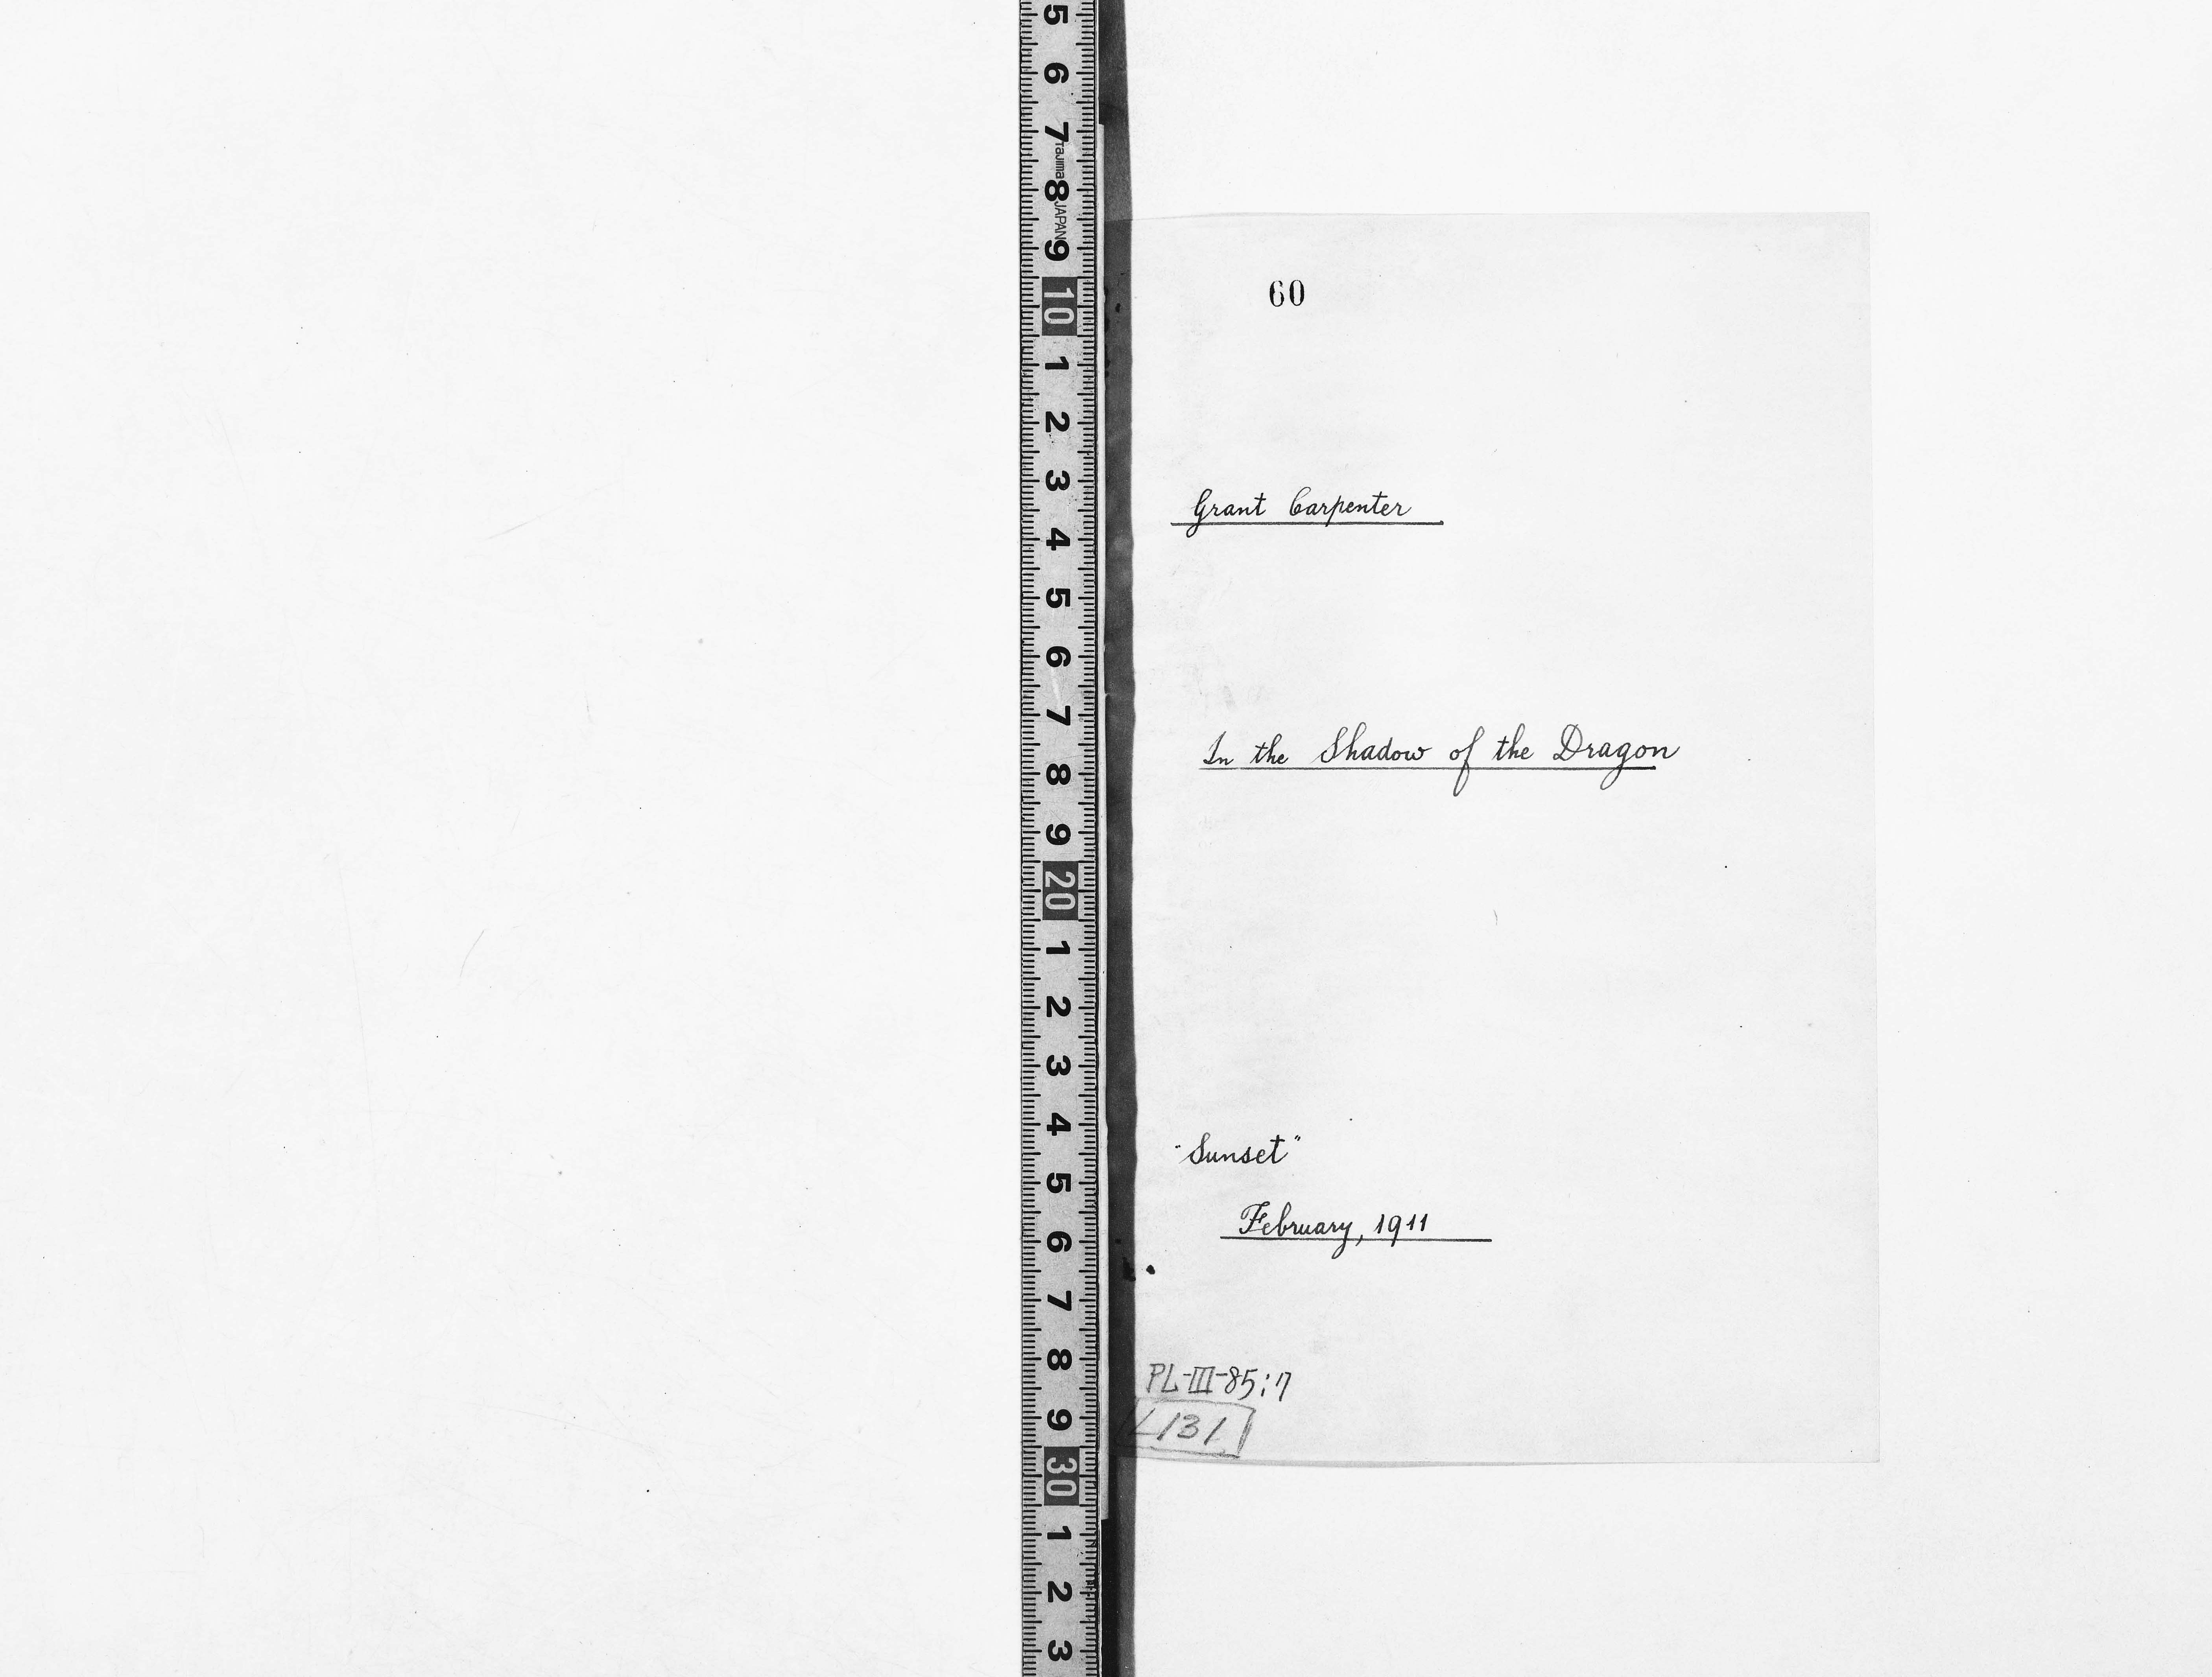 5
6
7
Tajima
8
JAPAN
9
10
1
2
3
4
5
6
7
8
9
20
1
2
3
4
5
6
7
8
9
30
1
2
3
60
Grant Carpenter
In the Shadow of the Dragon
"Sunset"
February, 1911
PL-III-85:7
L131